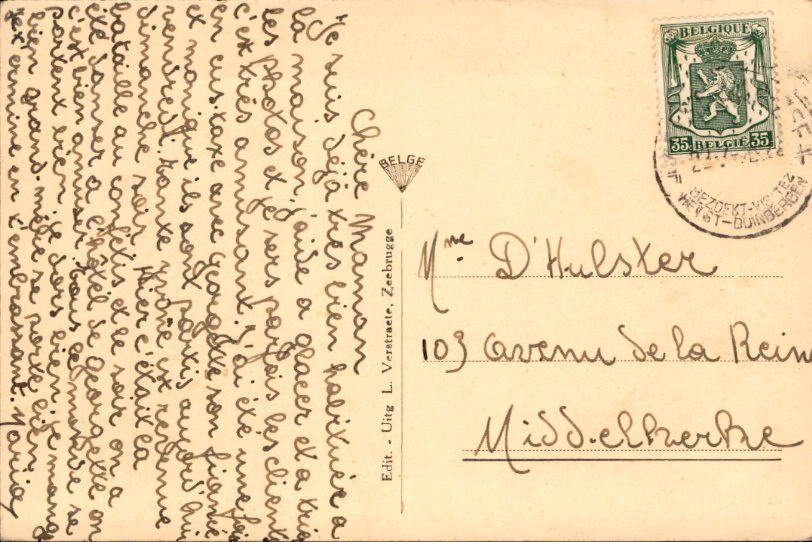 Chère Maman
Je suis déjà très bien habituée a
la maison, j'aide a glacer et a trié
les photos et je sers parfois les clients
c'est très amusant. J'ai été une fois
en cuistax avec georgette son fiancé
et monique ils sont partis aujourd'hui
vendredi, tante Yvonne est revenue
dimanche soir. Hier c'était la
bataille au confettis et le soir on a
été danser a l'hôtel de georgette on
c'est bien amuser tous le monde se
portent bien, je dors bien, je mange
bien grand-mère se porte bien
je termine en t'embrassant. Maria
BELGE
Edit. - Uitg L. Verstraete, Zeebrugge
BELGIQUE
35 BELGIË 35
BEZOEKT-VISITEZ
HEYST-DUINBERGEN
Mme D'Hulster
103 avenu de la Rein
Middelkerke